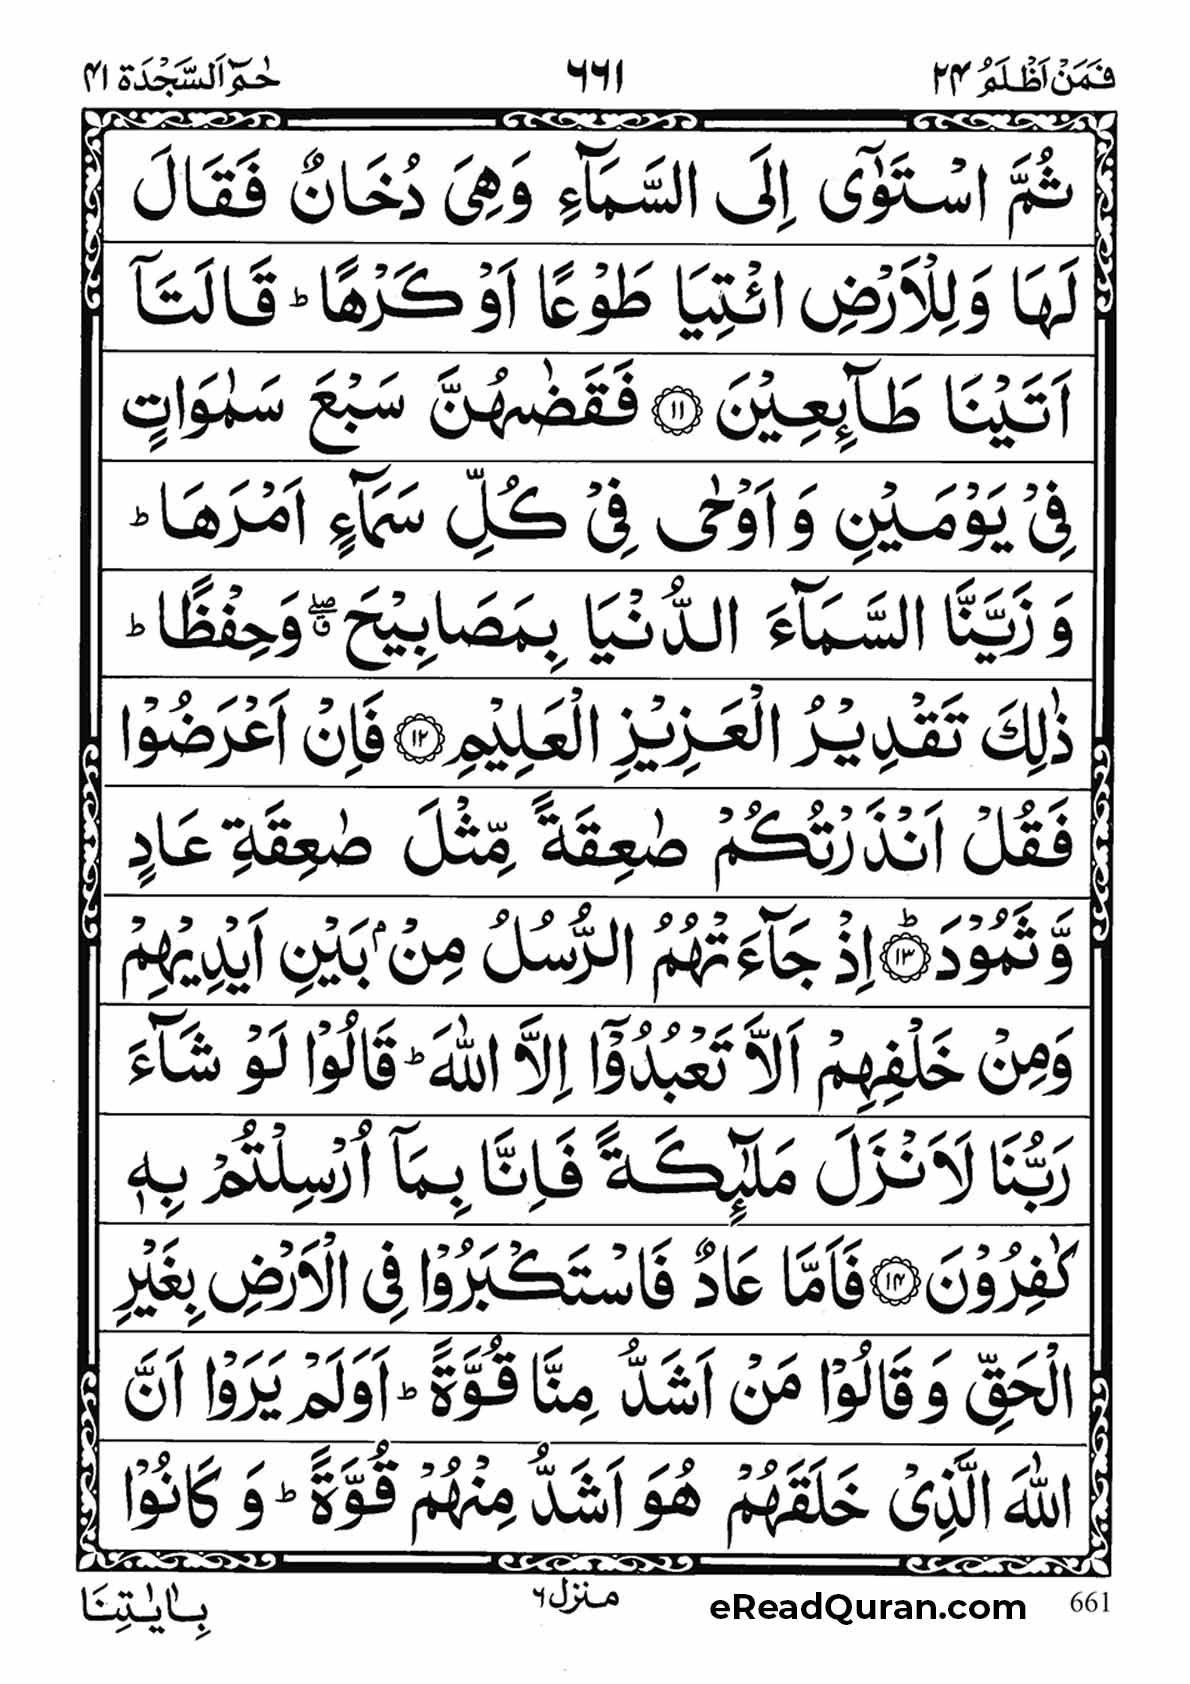 فَمَنْ اَظْلَمُ ۲۴ ۶۶۱ حٰمٓ اَلسَّجْدَة ۴۱
ثُمَّ اسْتَوٰۤی اِلَی السَّمَآءِ وَهِیَ دُخَانٌ فَقَالَ
لَهَا وَلِلْاَرْضِ ائْتِیَا طَوْعًا اَوْ كَرْهًا ؕ قَالَتَاۤ
اَتَیْنَا طَآىِٕعِیْنَ ۝۱۱ فَقَضٰىهُنَّ سَبْعَ سَمٰوَاتٍ
فِیْ یَوْمَیْنِ وَ اَوْحٰی فِیْ كُلِّ سَمَآءٍ اَمْرَهَا ؕ
وَ زَیَّنَّا السَّمَآءَ الدُّنْیَا بِمَصَابِیْحَ ۖۗ وَحِفْظًا ؕ
ذٰلِكَ تَقْدِیْرُ الْعَزِیْزِ الْعَلِیْمِ ۝۱۲ فَاِنْ اَعْرَضُوْا
فَقُلْ اَنْذَرْتُكُمْ صٰعِقَةً مِّثْلَ صٰعِقَةِ عَادٍ
وَّ ثَمُوْدَ ۝۱۳ؕ اِذْ جَآءَتْهُمُ الرُّسُلُ مِنْۢ بَیْنِ اَیْدِیْهِمْ
وَمِنْ خَلْفِهِمْ اَلَّا تَعْبُدُوْۤا اِلَّا اللّٰهَ ؕ قَالُوْا لَوْ شَآءَ
رَبُّنَا لَاَنْزَلَ مَلٰٓىِٕكَةً فَاِنَّا بِمَاۤ اُرْسِلْتُمْ بِهٖ
كٰفِرُوْنَ ۝۱۴ فَاَمَّا عَادٌ فَاسْتَكْبَرُوْا فِی الْاَرْضِ بِغَیْرِ
الْحَقِّ وَ قَالُوْا مَنْ اَشَدُّ مِنَّا قُوَّةً ؕ اَوَلَمْ یَرَوْا اَنَّ
اللّٰهَ الَّذِیْ خَلَقَهُمْ هُوَ اَشَدُّ مِنْهُمْ قُوَّةً ؕ وَ كَانُوْا
661 eReadQuran.com منزل ۶ بِاٰیٰتِنَا